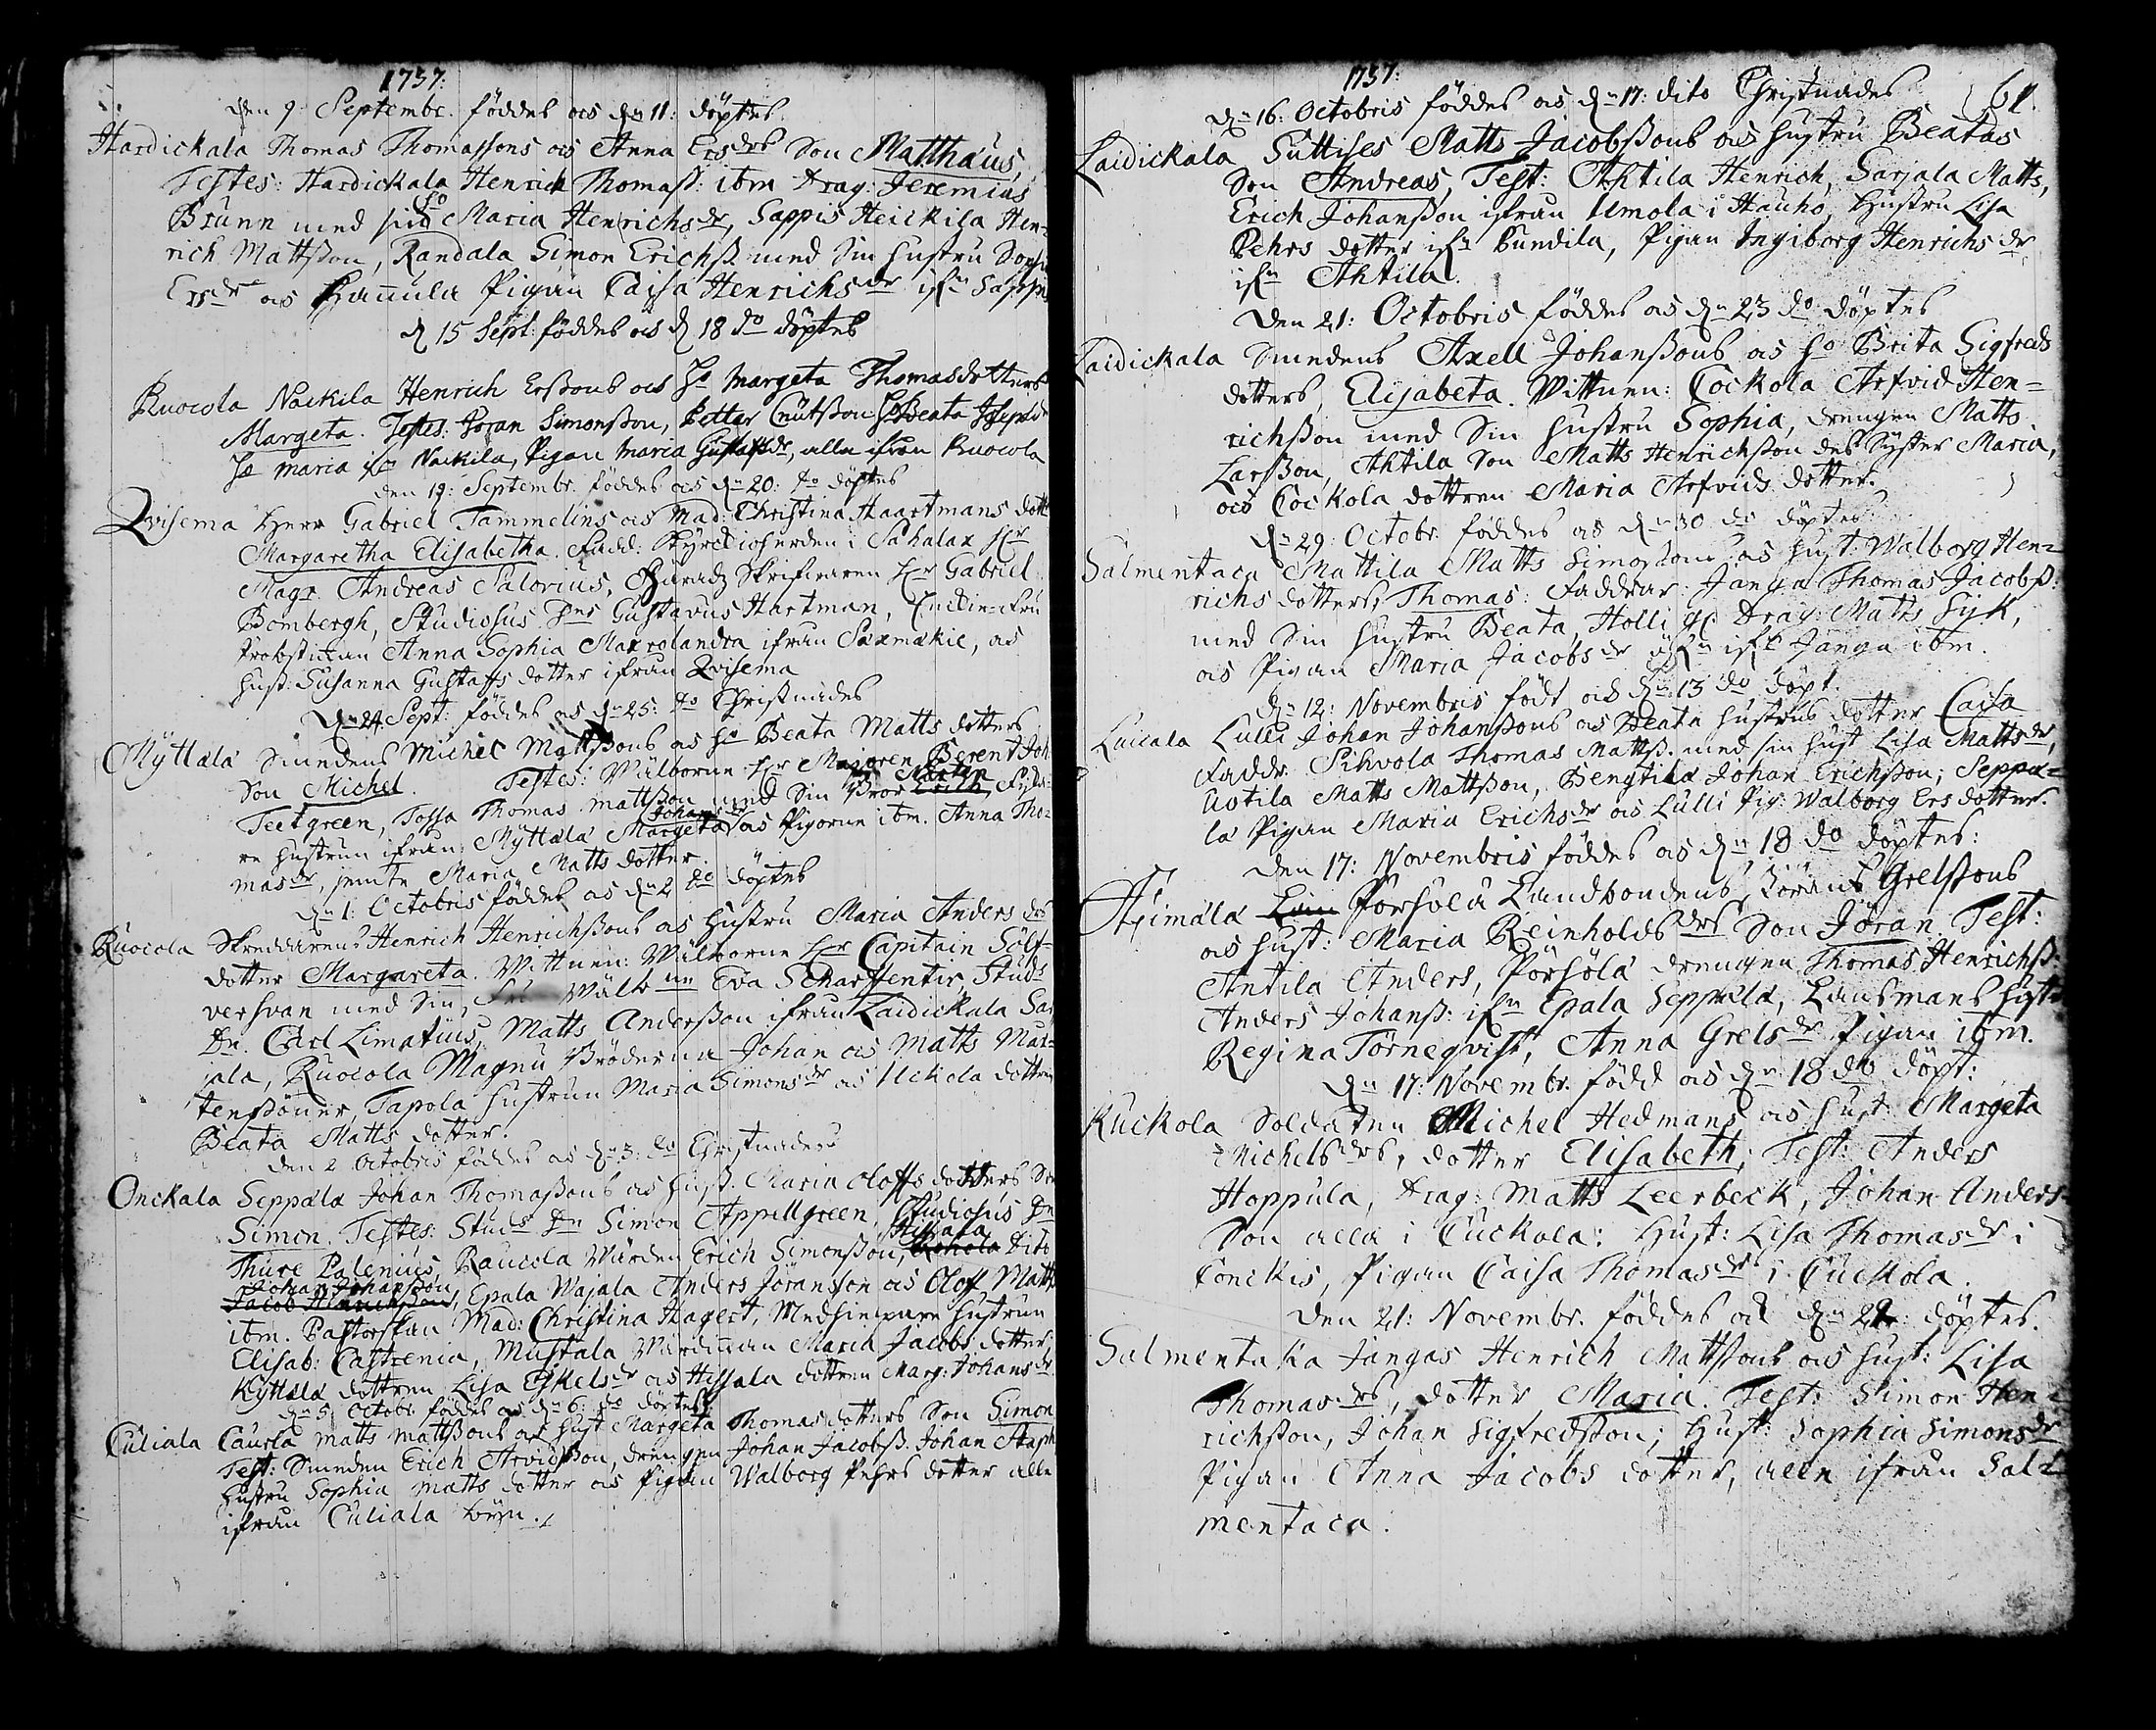 1737:
den 9 Septembr. föddes och dn 11: döptes
Hardickala Thomas Thomassons och Anna Ersdrs Son Matthæus,
Testes: Hardickala Henrich Thomaß: ibm Drag. Jeremias
Brunn med sin Ho Maria Henrichsdr, Sappis Heickila Hen=
rich Mattsson, Randala Simon Erichß. med Sin hustru
Ersdr och Hannula Pigan Caisa Henrichsdr ifrn
d 15 Sept: föddes och d 18 do döptes
Ruocola Nackila Henrich Erßons och Ho Margeta Thomasdotters
Margeta. Testes: Jöran Simonsson, Petter Cnutsson Ho Beata
Ho Maria ifrn Nackila, Pigan Maria Gustafsdr, alla ifrån Ruocola
den 19: Septembr. föddes och dn 20: do döptes
Qvisema Herr Gabriel Tammelins och Mad: Christina Haartmans dott
Margaretha Elisabetha. Fadd: Kyrckioherden i Sahalax Hr
Magr. Andreas Salovius, Häradz Skrifwaren Hr Gabriel
Bombergh, Studiosus Dns Gustavus Hartman, Enckie-Fru
Probstinnan Anna Sophia ifrån Saxmäkie, och
hust: Susanna Gustaffs dotter ifrån Qvisema
dn 24. Sept: föddes och dn 25: do Christnades
Myttälä Smedens Michel Mattßons och Ho Beata Matts dotters
Son Michel. Testes: Wälborne Hr Majoren Berent Joh
Teetgreen, Tossa Thomas Mattsson med Sin Bror Mårten
re hustrun ifrån Myttälä Margeta Johansdr och Pigorne ibm. Anna Tho=
masdr, jemte Maria Matts dotter.
dn 1: Octobris föddes och dn 2 do döptes
Ruocola Skreddarens Henrich Henrichßons och Hustru Maria Anders drs
dotter Margareta. Wittnen: Wälborne Hr Capitain Sölf=
versvan med Sin Fru Wälbne Eva Scharffentir, Studs
Dn. Carl Limatius, Matts Andersson ifrån Laidickala Sar
jala, Ruocola Magnu Bröderna Johan och Matts Mår=
tenssöner, Tapola hustrun Maria Simonsdr och Uckola dottren
Beata Matts dotter.
den 2 Octobris föddes och dn 3: do Christnades
Onckala Seppälä Johan Thomaßons och hust. Maria Oloffs dotters Son
Simon. Testes: Studs Dn Simon Appellgreen, Studiosus Dn
Thure Palenius, Raucola Wärden Erich Simonsson, Hissala Dito
Johan Johansson, Epala Wajala Anders Jöransson och Olof Matts
ibm. Pastorskan Mad: Christina Hagert, Medhielpare hustrun
Elisab: Castrenia, Mustala Wärdinnan Maria Jacobs dotter,
Kyttälä dottren Lisa Eskelsdr och Hissala dottren Marg: Johansdr
dn 5: Octobr. föddes och dn 6: do döptes
Culiala Caurla Matts Mattßons och Hust Margeta Thomas dotters Son Simon
Test: Smeden Erich Arvidsson, drengen Johan Jacobß. Johan Staph
Hustru Sophia Matts dotter och Pigan Walborg Pehrs dotter alla
ifrån Culiala byyn.
1737: 61.
dn 16: Octobris föddes och dn 17: dito Christnades
Laidickala Suttises Matts Jacobßons och hustru Beatas
Son Andreas, Test: Ahtila Henrich, Sarjala Matts,
Erich Johansson ifrån Umola i Hauho, Hustru Lisa
Pehrs dotter ifn Pundila, Pigan Ingiborg Henrichsdr
ifn Ahtila.
Den 21: Octobris föddes och dn 23 do döptes
Laidickala Smedens Axell Johanßons och Ho Brita Sigfreds
dotters, Elisabeta. Wittnen: Cockola Arfvid Hen=
richsson med Sin Hustru Sophia, drengen Matts
Larsson, Ahtila Son Matts Henrichsson des Syster Maria,
och Cockola dottren Maria Arfvids dotter.
dn 29: Octobr. föddes och dn 30 do döptes
Salmentaca Mattila Matts Simonßons och Hust: Walborg Hen=
richs dotters, Thomas: Faddrar: Janga Thomas Jacobß:
med Sin hustru Beata, Holli gl: Drag: Matts Syk,
och Pigan Maria Jacobsdr ifrn Janga ibm.
dn 12: Novembris född och dn 13 do döpt.
Luicala Lulli Johan Johanßons och Beata hustrus dotter Caisa
Faddr. Sihvola Thomas Mattß. med sin Hust Lisa Mattsdr,
Uotila Matts Mattsson, Bengtilä Johan Erichsson, Seppä=
lä Pigan Maria Erichsdr och Lulli Pig: Walborg Ers dotter.
den 17: Novembris föddes och dn 18 do döptes:
Äimälä Pörsölä Landbondens Jörans Grelßons
och hust: Maria Reinholdsdrs Son Jöran. Test:
Antila Anders, Pörsölä drengen Thomas Henrichß:
Anders Johanß: ifrn Epala Seppälä, Länsmans Hust:
Regina Törneqvist, Anna Grelsdr Pigan ibm.
dn 17: Novembr. född och dn 18 do döpt:
Kuckola Soldaten Michel Hedmans och Hust. Margeta
Michelsdrs, dotter Elisabeth; Test: Anders
Hoppula, Drag: Matts Leerbeck, Johan Anders=
Son alla i Cuckola: Hust: Lisa Thomasdr i
Conckis, Pigan Caisa Thomasdr i Cuckola.
Den 21: Novembr. föddes och dn 22: döptes.
Salmentaka Jangas Henrich Mattßons och Hust: Lisa
Thomasdrs, dotter Maria. Test: Simon Hen=
richsson, Johan Sigfredsson; Hust: Sophia Simonsdr
Pigan Anna Jacobs dotter, alla ifrån Sal=
mentaca.